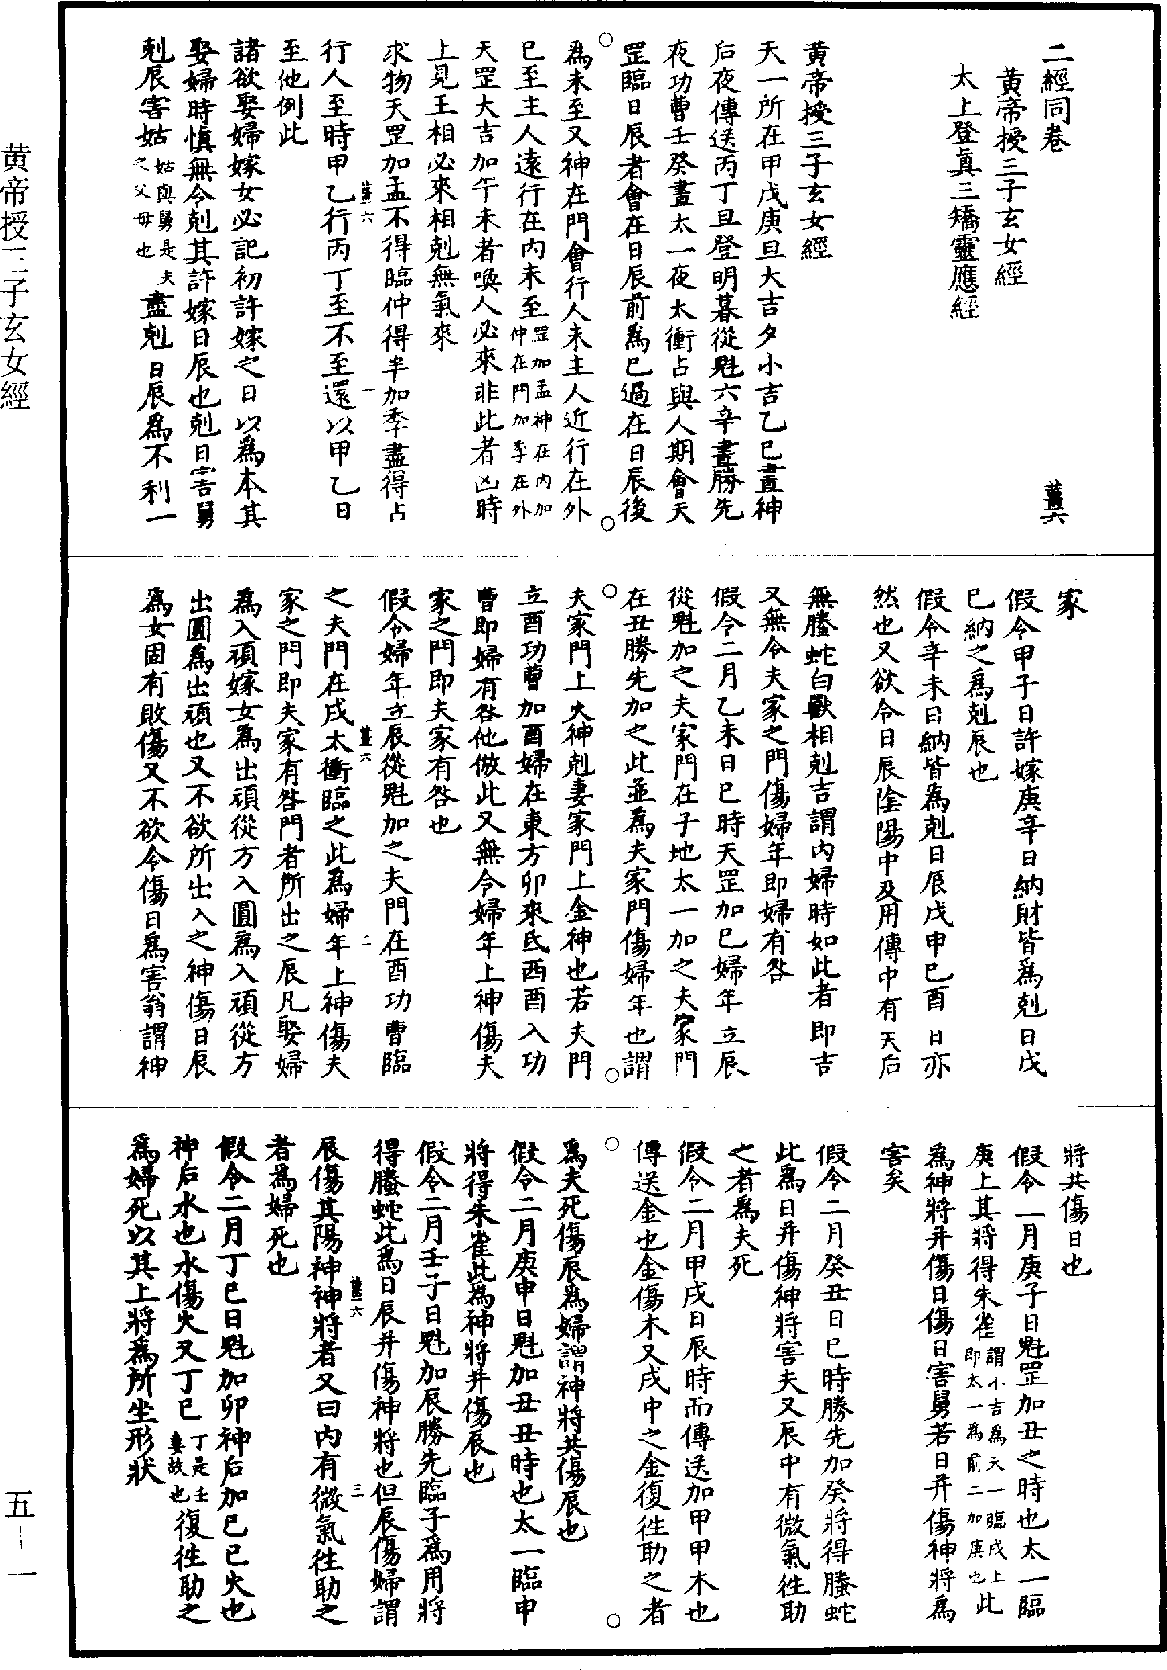 二經同卷 薑六
黃帝授三子玄女經
太上登真三矯靈應經
黃帝授三子玄女經
天一所在甲戊庚旦大吉夕小吉乙巳晝神
后夜傳送丙丁旦登明暮從魁六辛晝勝先
夜功曹壬癸晝太一夜太衝占與人期會天
罡臨日辰者會在日辰前為巳過在日辰後
為未至又神在門會行人未主人近行在外
巳至主人遠行在內未至罡加孟神在內加仲在門加季在外
天罡大吉加午未者喚人必來非此者凶時
上見王相必來相剋無氣來
求物天罡加孟不得臨仲得半加季盡得占
行人至時甲乙行丙丁至不至還以甲乙日
至他例此
諸欲娶婦嫁女必記初許嫁之日以為本其
娶婦時慎無令剋其許嫁日辰也剋日害舅
剋辰害姑姑與舅是夫之父母也盡剋日辰為不利一
家
假令甲子日許嫁庚辛日納財皆為剋日戊
巳納之為剋辰也
假令辛未日納皆為剋日辰戊申巳酉日亦
然也又欲令日辰陰陽中及用傳中有天后
無螣蛇白獸相剋吉謂內婦時如此者即吉
又無令夫家之門傷婦年即婦有咎
假令二月乙未日巳時天罡加巳婦年立辰
從魁加之夫家門在子地太一加之夫家門
在丑勝先加之此並為夫家門傷婦年也謂
夫家門上火神剋妻家門上金神也若夫門
立酉功曹加酉婦在東方卯來氐西酉入功
曹即婦有咎他倣此又無令婦年上神傷夫
家之門即夫家有咎也
假令婦年立辰從魁加之夫門在酉功曹臨
之夫門在戌太衝臨之此為婦年上神傷夫
家之門即夫家有咎門者所出之辰凡娶婦
為入頑嫁女為出頑從方入圓為入頑從方
出圓為出頑也又不欲所出入之神傷日辰
為女固有敗傷又不欲令傷日為害翁謂神
將共傷日也
假令一月庚子日魁罡加丑之時也太一臨
庚上其將得朱雀謂小吉為天一臨戌上即太一為前二加庚也此
為神將并傷日傷日害舅若日并傷神將為
害矣
假令二月癸丑日巳時勝先加癸將得螣蛇
此為日并傷神將害夫又辰中有微氣往助
之者為夫死
假令二月甲戌日辰時而傳送加甲甲木也
傳送金也金傷木又戌中之金復往助之者
為夫死傷辰為婦謂神將共傷辰也
假令二月庚申日魁加丑丑時也太一臨申
將得朱雀此為神將并傷辰也
假令二月壬子日魁加辰勝先臨子為用將
得螣蛇此為日辰并傷神將也但辰傷婦謂
辰傷其陽神神將者又曰內有微氣往助之
者為婦死也
假令二月丁巳日魁加卯神后加巳巳火也
神后水也水傷火又丁巳丁是壬妻故也復往助之
為婦死以其上將為所坐形狀
薑六 一
薑六 二
薑六 三
黃帝授三子玄女經
五—一